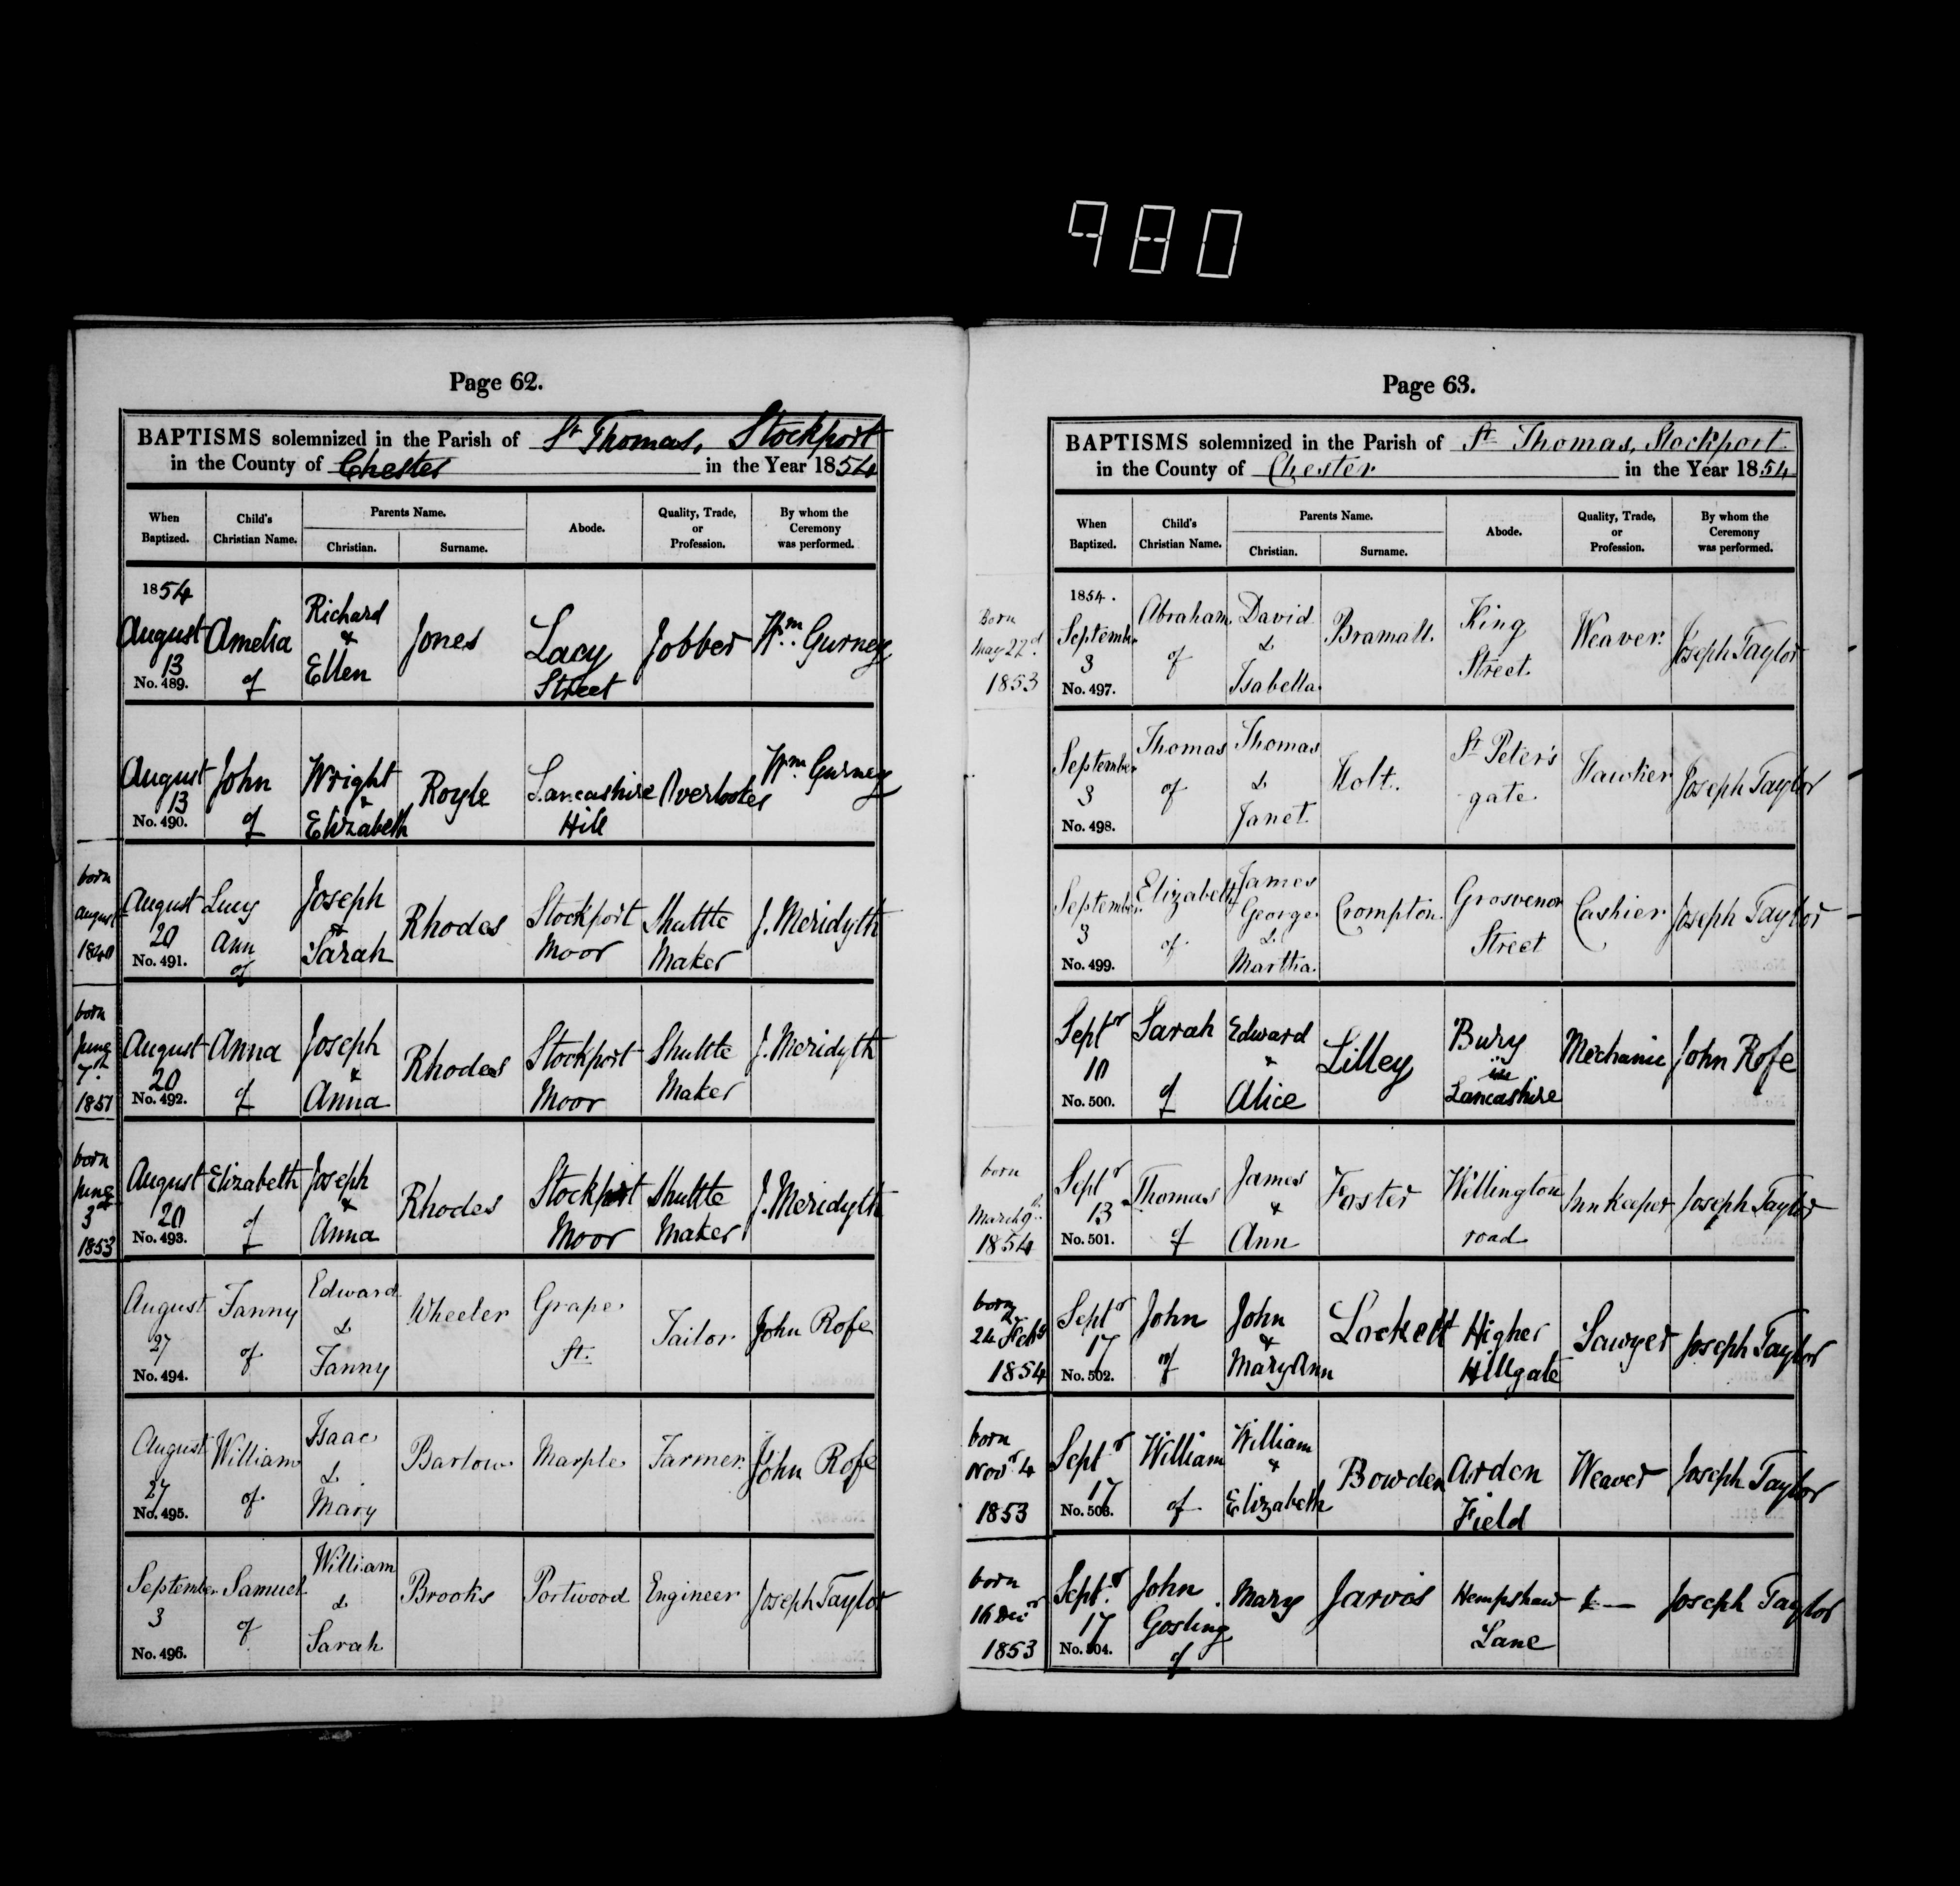 980
Page 62.
BAPTISMS solemnized in the Parish of St Thomas, Stockport
in the County of Chester in the Year 1854
When Baptized. Child's Christian Name. Parents Name. Christian. Surname. Abode. Quality, Trade, or Profession. By whom the Ceremony was performed.
1854
August 13 No. 489. Amelia of Richard & Ellen Jones Lacy Street Jobber Wm. Gurney
August 13 No. 490. John of Wright & Elizabeth Royle Lancashire Hill Overlooker Wm. Gurney
born August 1840 August 20 No. 491. Lucy Ann of Joseph & Sarah Rhodes Stockport Moor Shuttle Maker J. Meridyth
born June 7th 1851 August 20 No. 492. Anna of Joseph & Anna Rhodes Stockport Moor Shuttle Maker J. Meridyth
born June 3rd 1853 August 20 No. 493. Elizabeth of Joseph & Anna Rhodes Stockport Moor Shuttle Maker J. Meridyth
August 27 No. 494. Fanny of Edward & Fanny Wheeler Grape St. Tailor John Rofe
August 27 No. 495. William of Isaac & Mary Barlow Marple Farmer John Rofe
September 3 No. 496. Samuel of William & Sarah Brooks Portwood Engineer Joseph Taylor
Page 63.
BAPTISMS solemnized in the Parish of St Thomas, Stockport
in the County of Chester in the Year 1854
When Baptized. Child's Christian Name. Parents Name. Christian. Surname. Abode. Quality, Trade, or Profession. By whom the Ceremony was performed.
1854.
Born May 22d 1853 September 3 No. 497. Abraham of David & Isabella Bramall King Street Weaver Joseph Taylor
September 3 No. 498. Thomas of Thomas & Janet Holt St Peter's gate Hawker Joseph Taylor
September 3 No. 499. Elizabeth of James George & Martha Crompton Grosvenor Street Cashier Joseph Taylor
Septr 10 No. 500. Sarah of Edward & Alice Lilley Bury in Lancashire Mechanic John Rofe
born March 9th 1854 Septr 13 No. 501. Thomas of James & Ann Foster Willington road Innkeeper Joseph Taylor
born 24 Feby 1854 Septr 17 No. 502. John of John & Mary Ann Lockett Higher Hillgate Sawyer Joseph Taylor
born Novr 4 1853 Septr 17 No. 503. William of William & Elizabeth Bowden Arden Field Weaver Joseph Taylor
born 16 Decr 1853 Septr 17 No. 504. John Gosling of Mary Jarvis Hempshaw Lane — Joseph Taylor